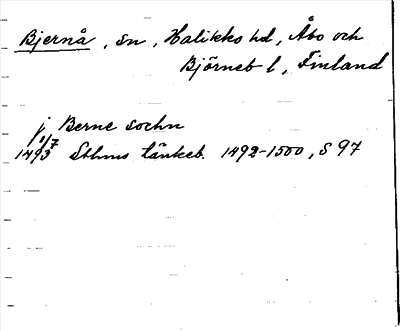 Bjernå, sn, Halikko hd, Åbo och
Björneb l, Finland
j Berne sochn
1/7
1493 Sthms tänkeb. 1492-1500, S 97